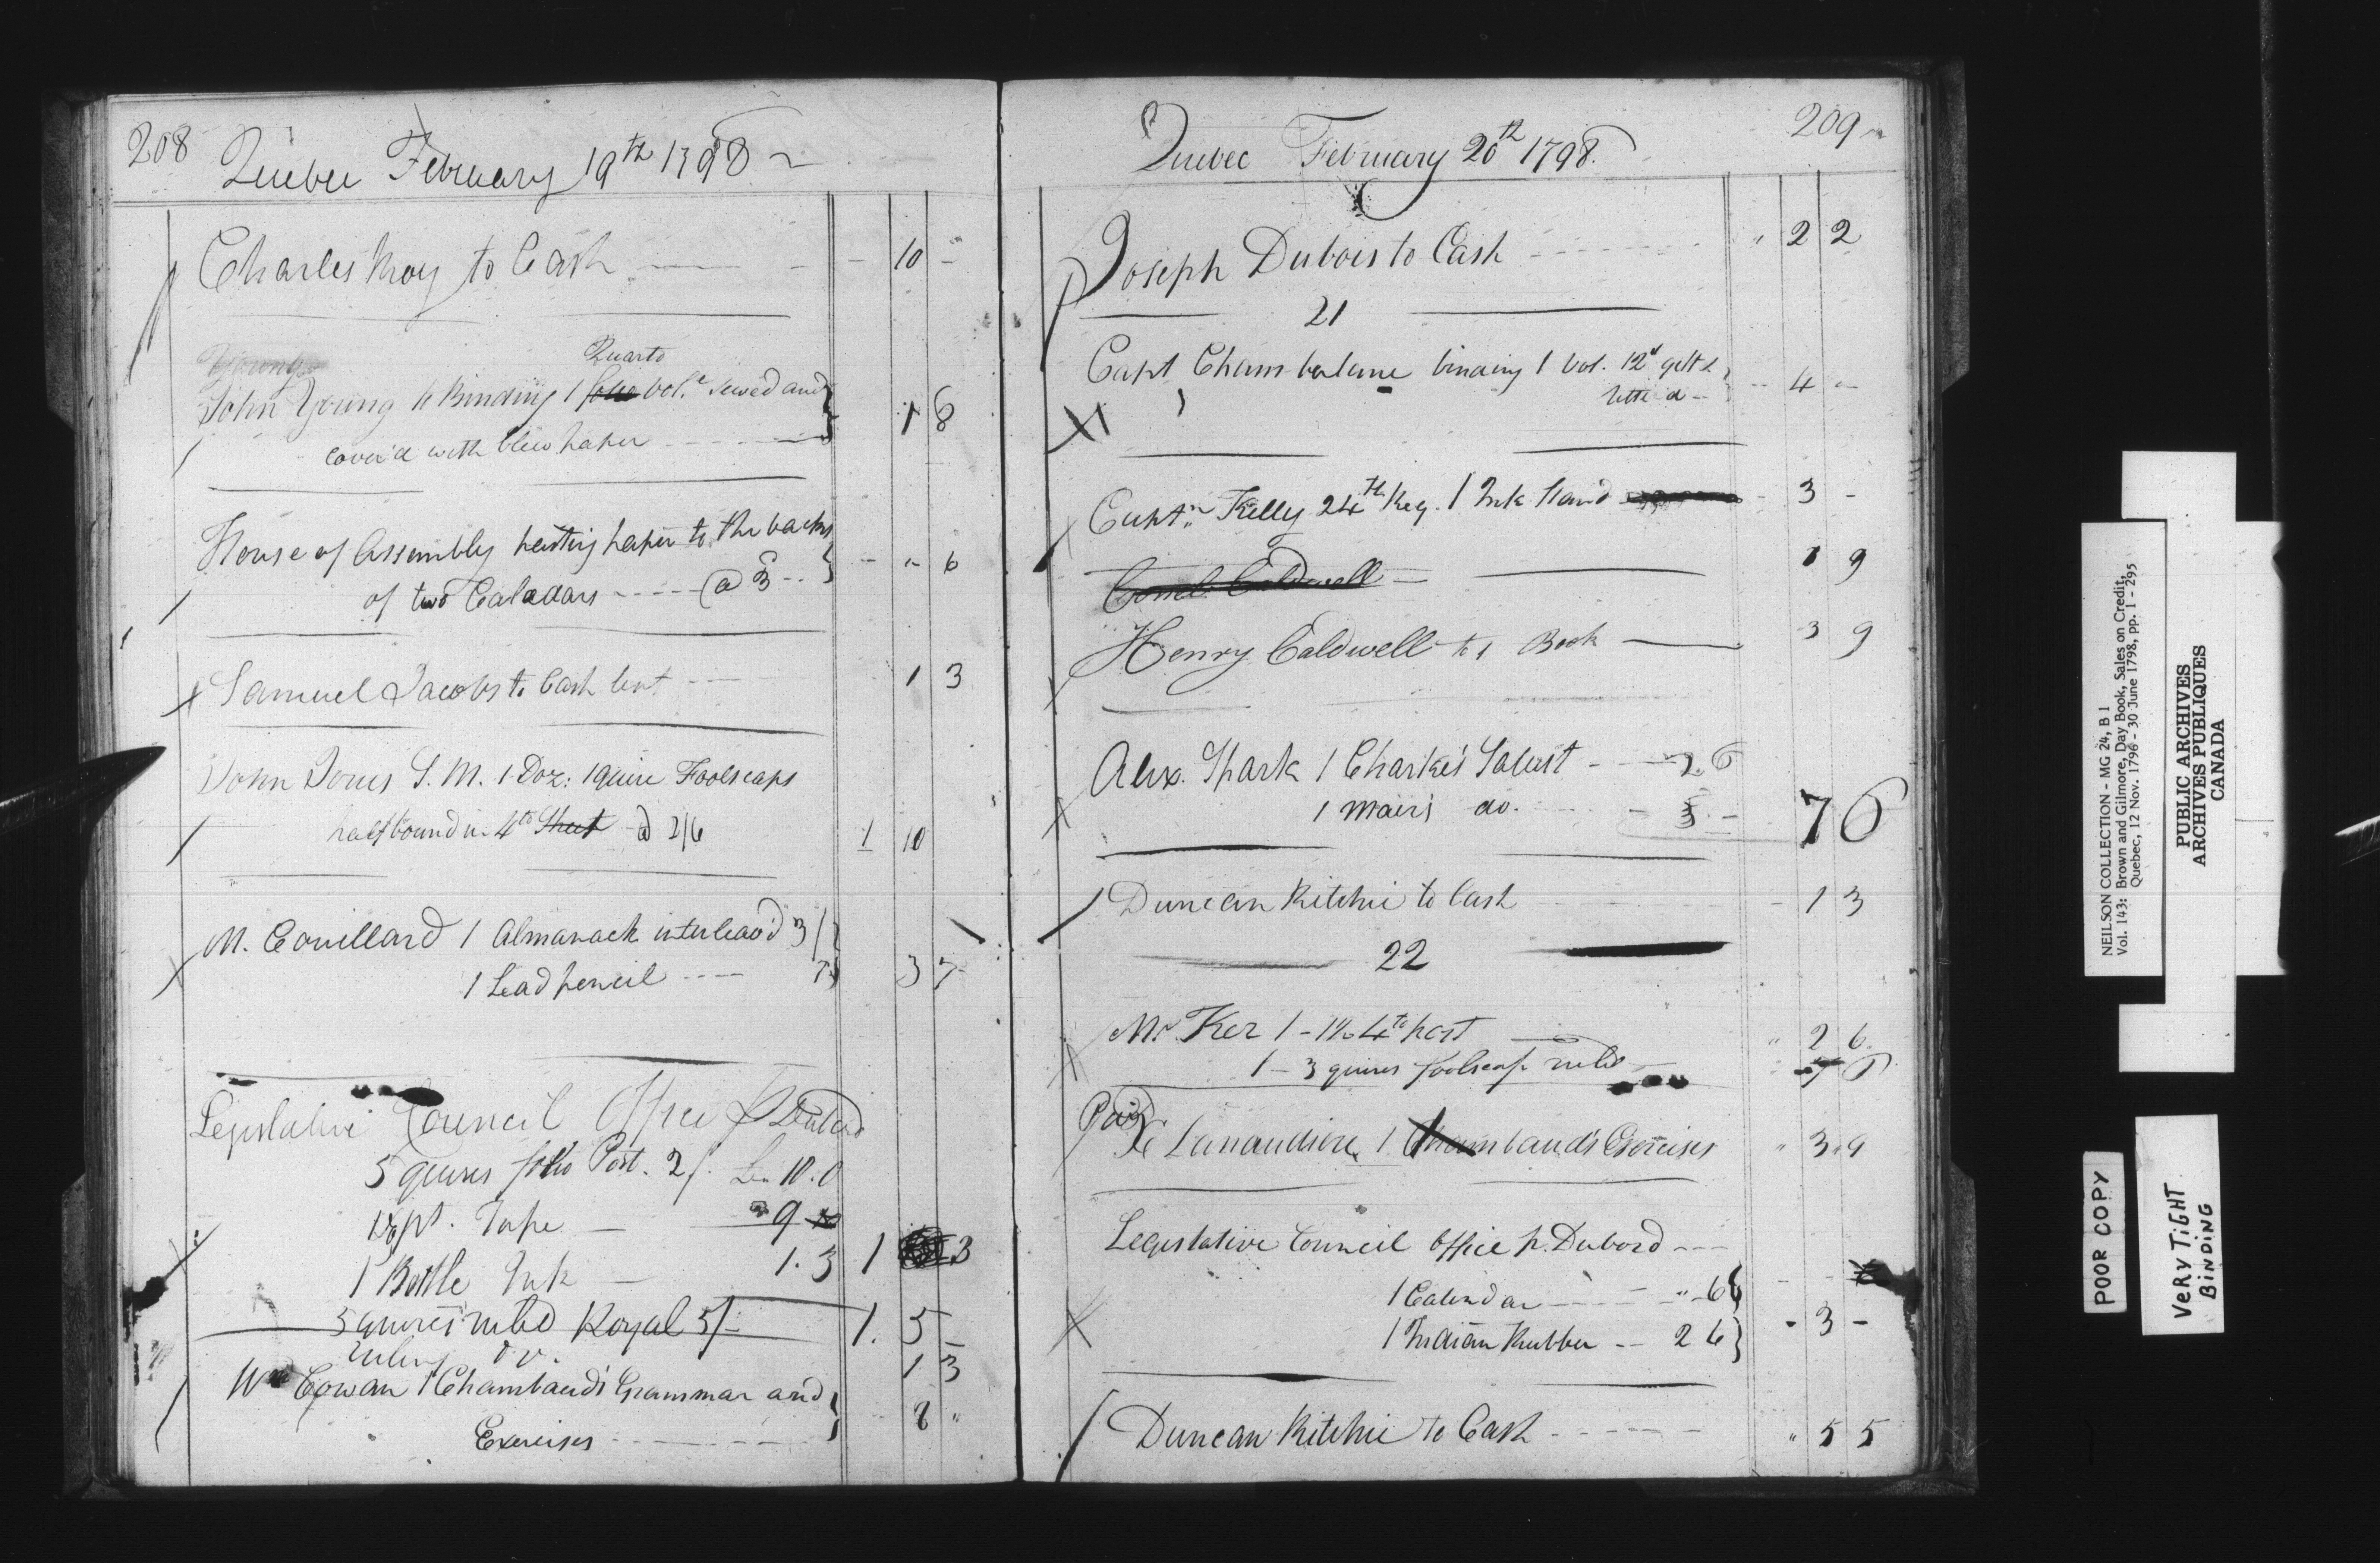 208
Quebec February 19th 1798
Charles Roy to Cash - 10 -
Young
Quarto
John Young to Binding 1 folio vol. sewed and
cover'd with blew paper 1 8
House of Assembly pasting paper to the backs
of two Caladars @ 3 - " 6
Samuel Jacobs to Cash lent 1 3
John Jones S. M. 1 Doz: 1 quire Foolscaps
half bound in 4to Sheet @ 2/6 1 10
M. Couillard 1 Almanack interleav'd 3/
1 Lead pencil 7 3 7
Legislative Council Office p Dubord
5 quires folio Post. 2/. 10.0
pt. Tape 9
1 Bottle Ink 1.3 1 3
5 quires ruled Royal 5/- 1. 5 -
Ruling do. 1 3
Wm Cowan 1 Chambaud's Grammar and
Exercises 8 "
209
Quebec February 20th 1798.
Joseph Dubois to Cash " 2 2
21
Capt Chamberlane binding 1 vol. 12° gilt &
letter'd 4 -
Captn. Kelly 24th Reg. 1 Ink Stand - 3 -
Conel. Caldwell 1 9
Henry Caldwell to 1 Book 3 9
Alex. Spark 1 Clarke's Salust 2 6
1 Mair's do. 5 - 7 6
Duncan Ritchie to Cash - 1 3
22
Mr Ker 1 - 4to post " 2 6
1 - 3 quires foolscap ruled
Paid
De Lanaudiere 1 Chambaud's Exercises " 3.9
Legislative Council Office p. Dubord
1 Calendar " 6
1 Indian Rubber 2 6 - 3 -
Duncan Ritchie to Cash " 5 5
NEILSON COLLECTION - MG 24, B 1
Vol. 143: Brown and Gilmore, Day Book, Sales on Credit,
Quebec, 12 Nov. 1796 - 30 June 1798, pp. 1 - 295
PUBLIC ARCHIVES
ARCHIVES PUBLIQUES
CANADA
POOR COPY
VERY TIGHT
BINDING